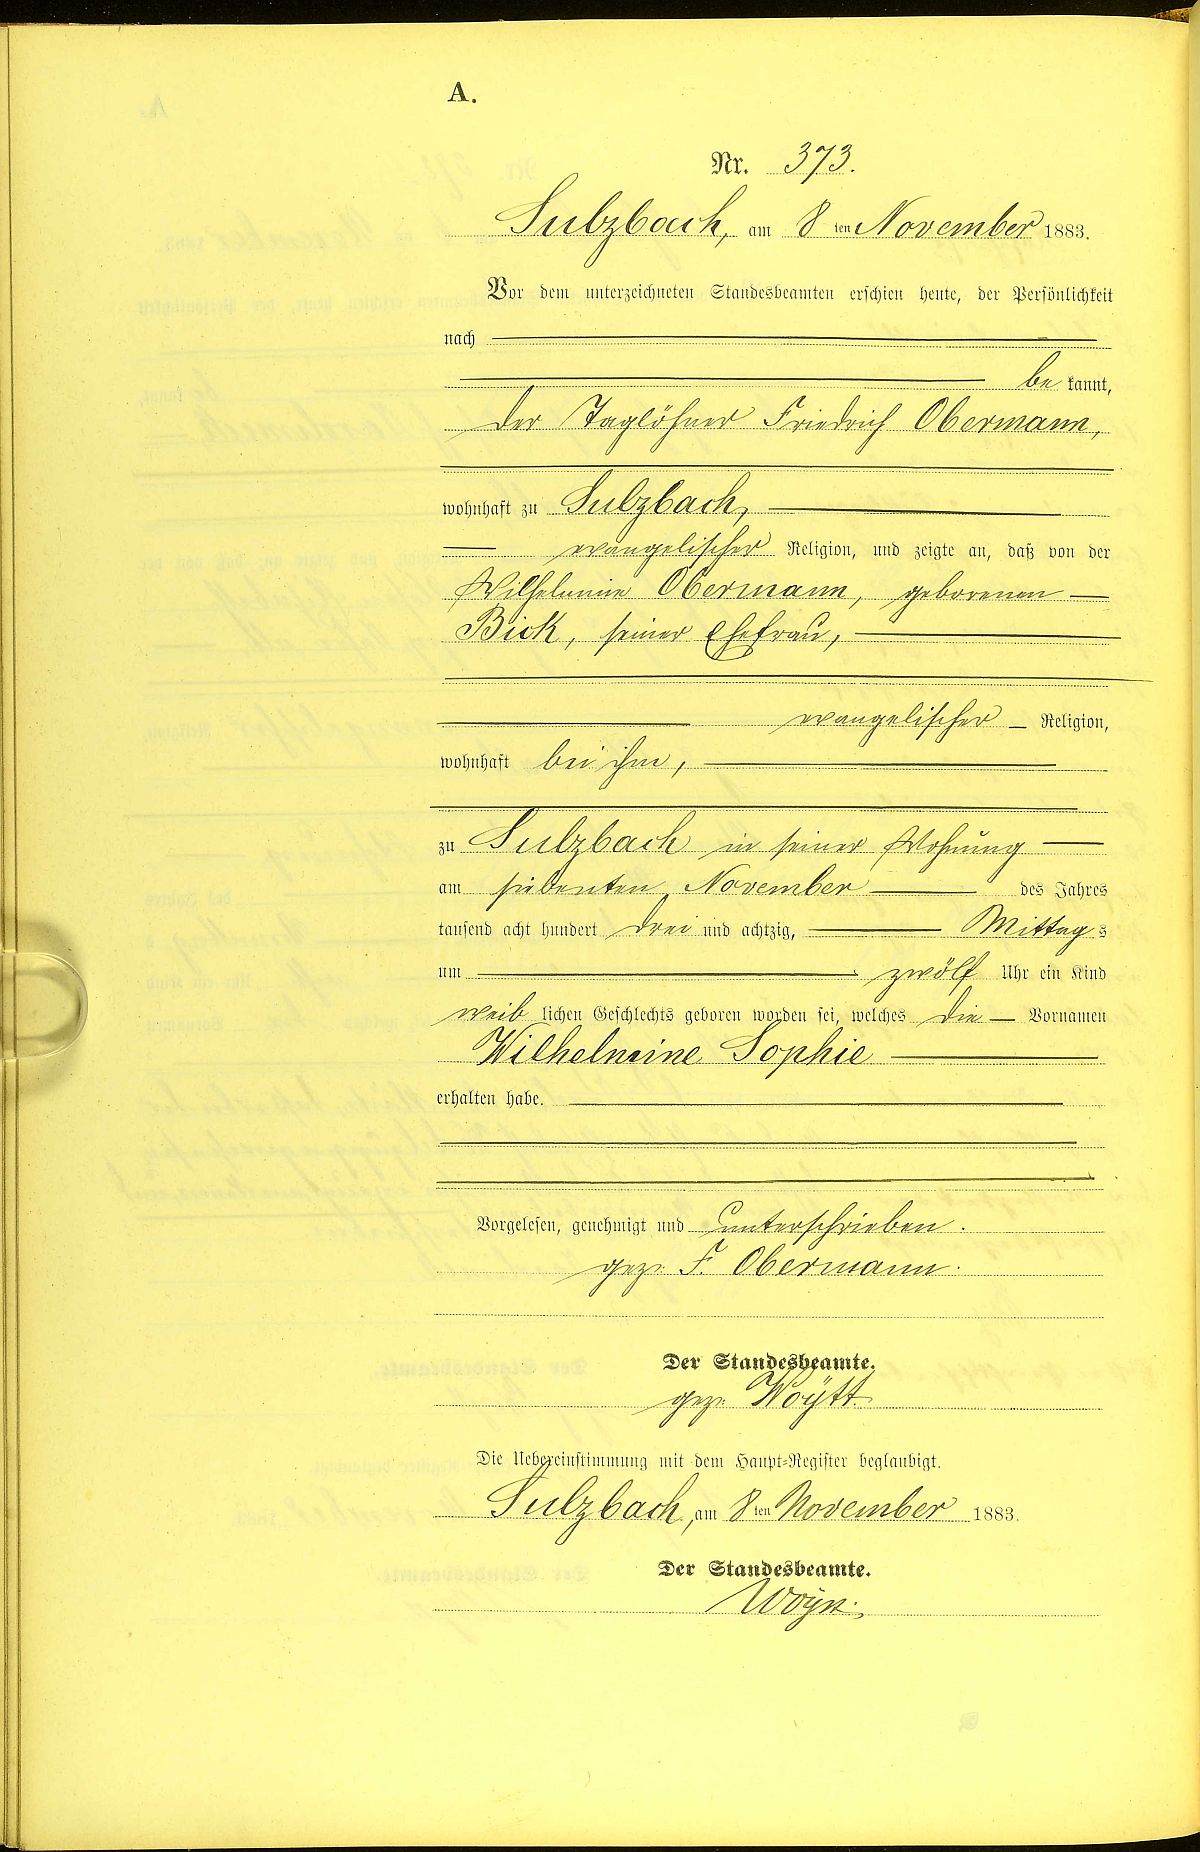 A.
Nr. 373.
Sulzbach, am 8 ten November 1883.
Vor dem unterzeichneten Standesbeamten erschien heute, der Persönlichkeit
nach
be kannt,
der Taglöhner Friedrich Obermann,
wohnhaft zu Sulzbach,
evangelischer Religion, und zeigte an, daß von der
Wilhelmine Obermann, geborenen
Bick, seiner Ehefrau,
evangelischer Religion,
wohnhaft bei ihm,
zu Sulzbach in seiner Wohnung
am siebenten November des Jahres
tausend acht hundert drei und achtzig, Mittag s
um zwölf Uhr ein Kind
weib lichen Geschlechts geboren worden sei, welches die Vornamen
Wilhelmine Sophie
erhalten habe.
Vorgelesen, genehmigt und unterschrieben.
gez. F. Obermann.
Der Standesbeamte.
gez. Woytt
Die Uebereinstimmung mit dem Haupt-Register beglaubigt.
Sulzbach, am 8 ten November 1883.
Der Standesbeamte.